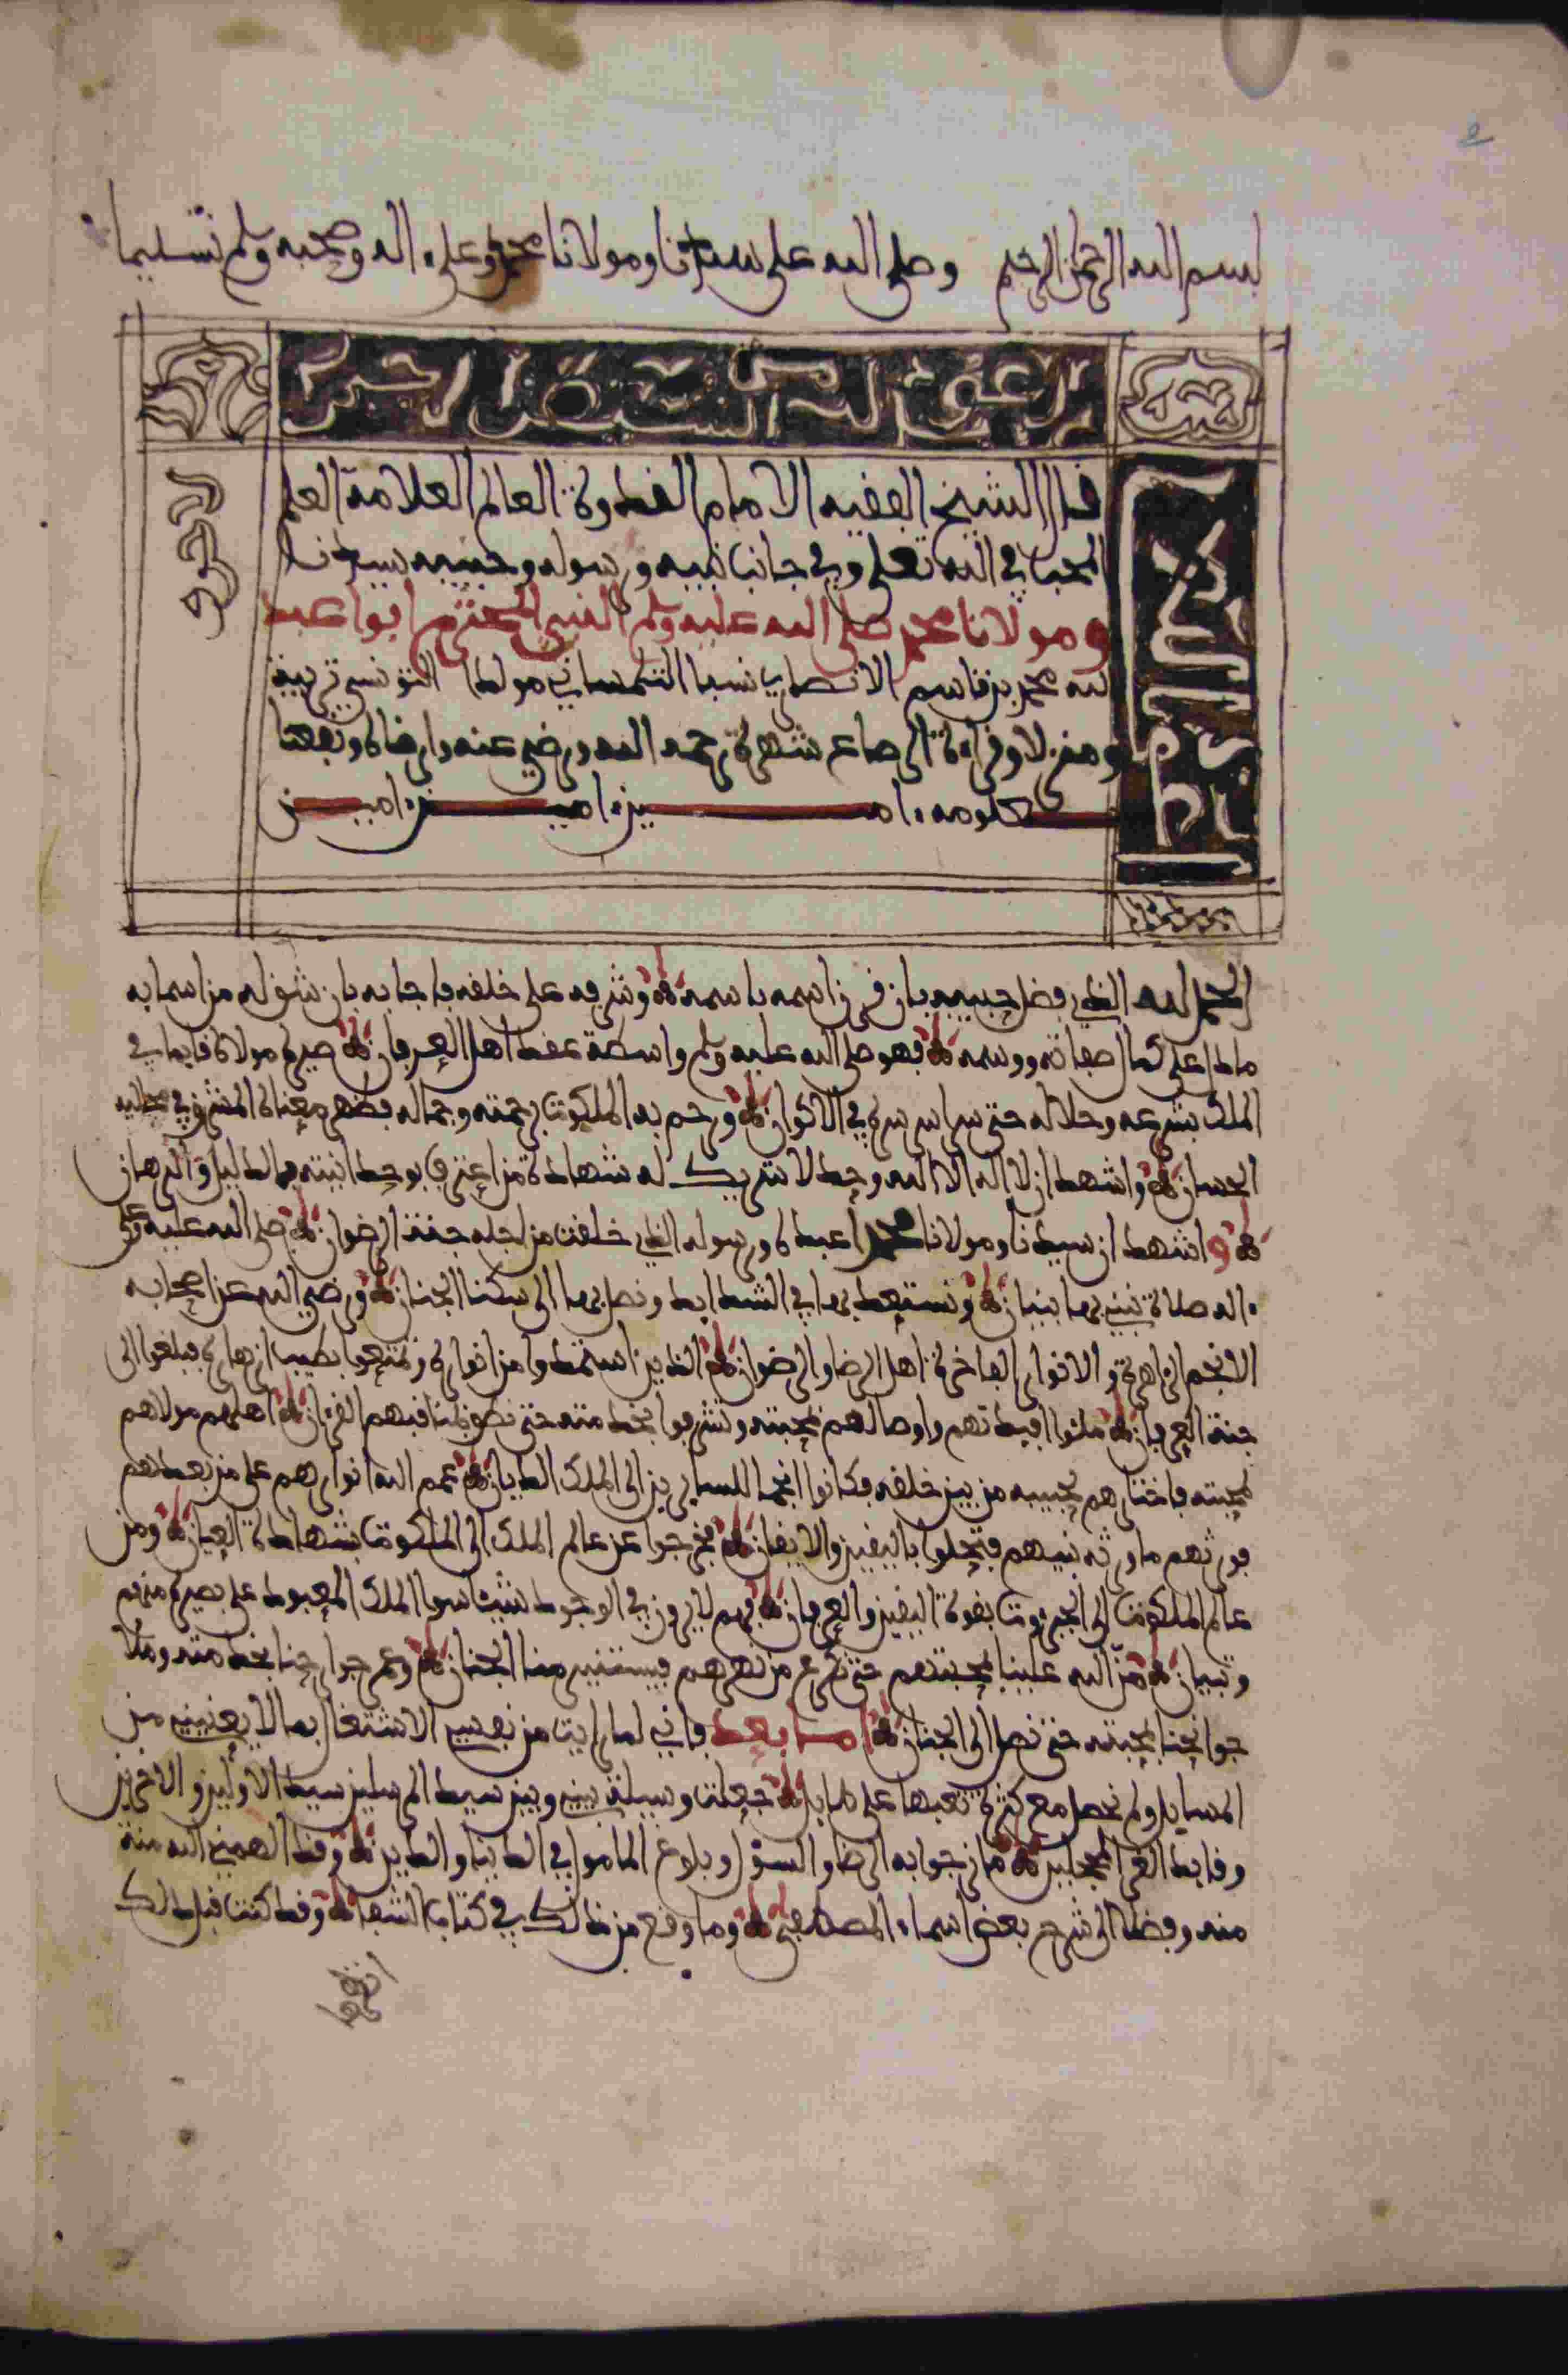 بسم الله الرحمن الرحيم وصلى الله على سيدنا ومولانا محمد وعلى ءاله وصحبه وسلم تسليما
قال الشيخ الفقيه الامام القدوة العالم العلامة العلم
المحب في الله تعلى وفي جانب نبيه ورسوله وحبيبه سيدنا
ومولانا محمد صلى الله عليه وسلم النبي المحترم ابوا عبد
الله محمد بن قاسم الانصاري نسبا التلمساني مولدا التونسي تربية
ومنزلا وقراءة الرصاع شهرة رحمه الله ورضي عنه وارضاه ونفعنا
بعلومه ءاميــن ءاميــن ءاميــن
الحمد لله الذي فضل حبيبه بان قرن اسمه باسمه وشرفه على خلقه فاحابه بان شق له من اسمايه
مادل على كمال صفاته ووسمه فهو صلى الله عليه وسلم واسطة عقد اهل العرفان صيره مولاه قايما في
الملك بشرعه وجلاله حتى سرى سره في الاكوان ورحم به الملكوت برحمته وجماله فظهر معناه المشرق في محاليه
الحسان واشهد ان لا اله الا الله وحده لا شريك له شهادة من اعترف بوحدانيته بالدليل والبرهان
واشهد ان سيدنا ومولانا محمدا عبده ورسوله الذي خلقت من اجله جنة الرضوان صلى الله عليه وعلى
ءاله صلاة نبني بها بنيان ونستعد بها في الشدايد ونصل بها الى سكنا الجنان ورضي الله عن اصحابه
الانجم الزاهرة والانوار الفاخرة اهل الرضا والرضوان الذين استمدوا من انواره وتمتعوا بطيب ازهاره فبلغوا الى
جنة العرفان ملئوا افيدتهم واوصالهم بمحبته وتشرفوا بخدمته حتى نطق بمناقبهم القرءان اهلهم مولاهم
لمحبته فاختارهم لحبيبه من بين خلقه فكانوا انجما للسايرين الى الملك الديان عمم الله انوارهم على من بعدهم
فورثهم ما ورثه نبيهم فتحلوا باليقين والايقان فخرجوا عن عالم الملك الى الملكوت بشهادة العيان ومن
عالم الملكوت الى الجبروت بقوة اليقين والعرفان فهم لا يرون في الوجود شيئا سوا الملك المعبود على بصيرة منهم
وتبيان من الله علينا بمحبتهم حتى نكرع من نهرهم فيستنير منا الجنان وعمر جوارحنا بخدمته وملا
جوانحنا بمحبته حتى نصل الى الجنان اما بعد فاني لما رايت من نفسي الاشتغال بما لا يعنيني من
المسايل ولم نحصل مع كثرة تعبها على طايل جعلت وسيلة بيني وبين سيد المرسلين سيد الاولين والاخرين
وقايد الغر المحجلين ما نرجوا به الرضا والسؤل وبلوغ المامول في الدنيا والدين وقد الهمني الله منة
منه وفضلا الى شرح بعض اسماء المصطفى وما وقع من ذلك في كتاب الشفا وقد كنت قبل ذلك